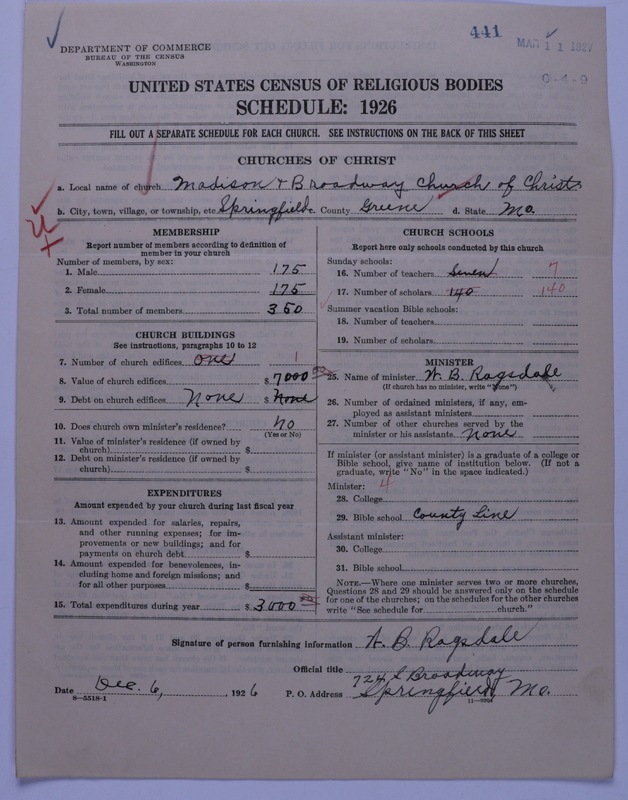 441
MAR 11 1927
9-4-9
DEPARTMENT OF COMMERCE
BUREAU OF THE CENSUS
WASHINGTON
UNITED STATES CENSUS OF RELIGIOUS BODIES
SCHEDULE: 1926
FILL OUT A SEPARATE SCHEDULE FOR EACH CHURCH. SEE INSTRUCTIONS ON THE BACK OF THIS SHEET
CHURCHES OF CHRIST
a. Local name of church Madison & Broadway Church of Christ
b. City, town, village, or township, etc. Springfield c. County Greene d. State Mo.
MEMBERSHIP
Report number of members according to definition of
member in your church
Number of members, by sex:
1. Male 175
2. Female 175
3. Total number of members 350
CHURCH BUILDINGS
See instructions, paragraphs 10 to 12
7. Number of church edifices one 1
8. Value of church edifices $ 7000
9. Debt on church edifices None $ None
10. Does church own minister's residence? no
(Yes or No)
11. Value of minister's residence (if owned by
church) $
12. Debt on minister's residence (if owned by
church) $
EXPENDITURES
Amount expended by your church during last fiscal year
13. Amount expended for salaries, repairs,
and other running expenses; for im-
provements or new buildings; and for
payments on church debt $
14. Amount expended for benevolences, in-
cluding home and foreign missions; and
for all other purposes $
15. Total expenditures during year $ 3000
CHURCH SCHOOLS
Report here only schools conducted by this church
Sunday schools:
16. Number of teachers Seven 7
17. Number of scholars 140 140
Summer vacation Bible schools:
18. Number of teachers
19. Number of scholars
MINISTER
25. Name of minister W. B. Ragsdale
(If church has no minister, write "None")
26. Number of ordained ministers, if any, em-
ployed as assistant ministers
27. Number of other churches served by the
minister or his assistants None
If minister (or assistant minister) is a graduate of a college or
Bible school, give name of institution below. (If not a
graduate, write "No" in the space indicated.)
Minister: 4
28. College
29. Bible school County Line
Assistant minister:
30. College
31. Bible school
NOTE.—Where one minister serves two or more churches,
Questions 28 and 29 should be answered only on the schedule
for one of the churches; on the schedules for the other churches
write "See schedule for church."
Signature of person furnishing information W. B. Ragsdale
Official title
724 S Broadway
Date Dec. 6, , 1926 P. O. Address Springfield, Mo.
8-5518-1